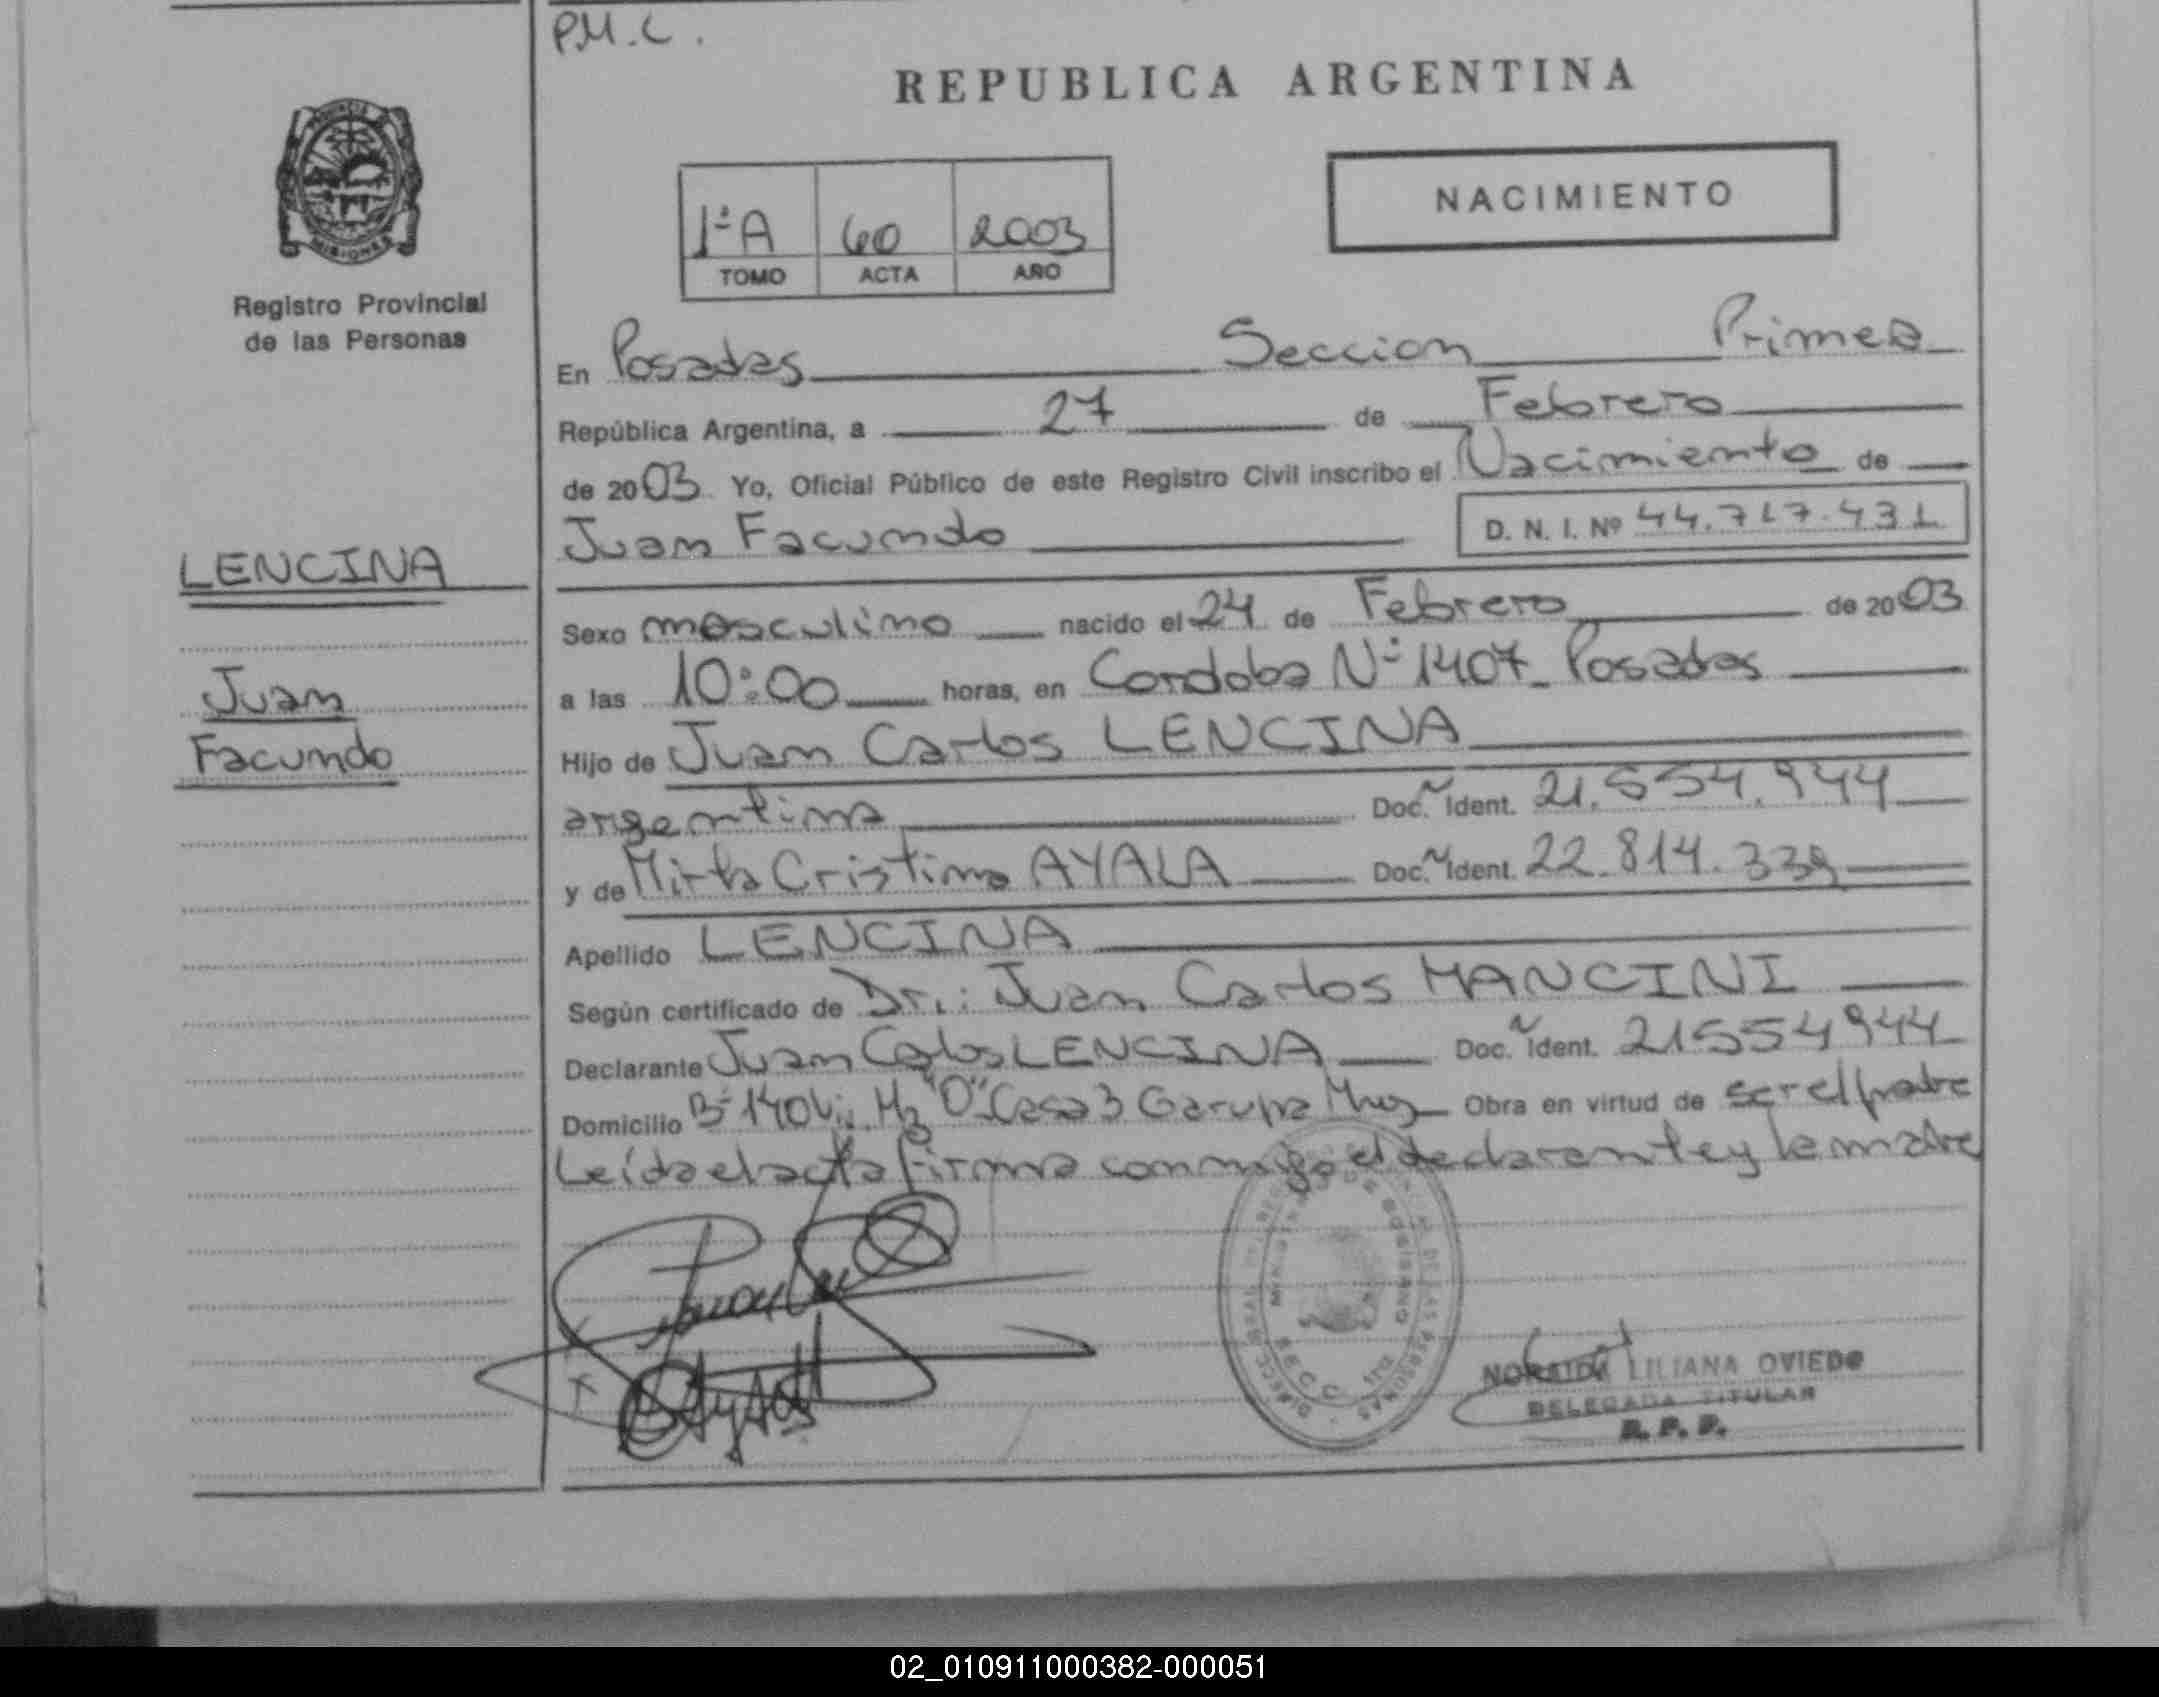 P.M.C.
REPUBLICA ARGENTINA
PROVINCIA DE MISIONES
Registro Provincial
de las Personas
NACIMIENTO
1ºA 60 2003
TOMO ACTA AÑO
En Posadas Seccion Primera
República Argentina, a 27 de Febrero
de 2003 Yo, Oficial Público de este Registro Civil inscribo el Nacimiento de
Juan Facundo D. N. I. Nº 44.717.431
LENCINA
Juan
Facundo
Sexo masculino nacido el 24 de Febrero de 2003
a las 10:00 horas, en Cordoba Nº 1407_ Posadas
Hijo de Juan Carlos LENCINA
argentina Doc. Ident. 21.554.944
y de Mirta Cristina AYALA Doc. Ident. 22.814.339
Apellido LENCINA
Según certificado de Dr.: Juan Carlos MANCINI
Declarante Juan Carlos LENCINA Doc. Ident. 21554944
Domicilio Bº 140 Vi. Mz "O" Casa 3 Garupa Mnes Obra en virtud de ser el padre
Leída el acta firma conmigo el declarante y la madre
LILIANA OVIEDO
DELEGADA TITULAR
R. P. P.
02_010911000382-000051